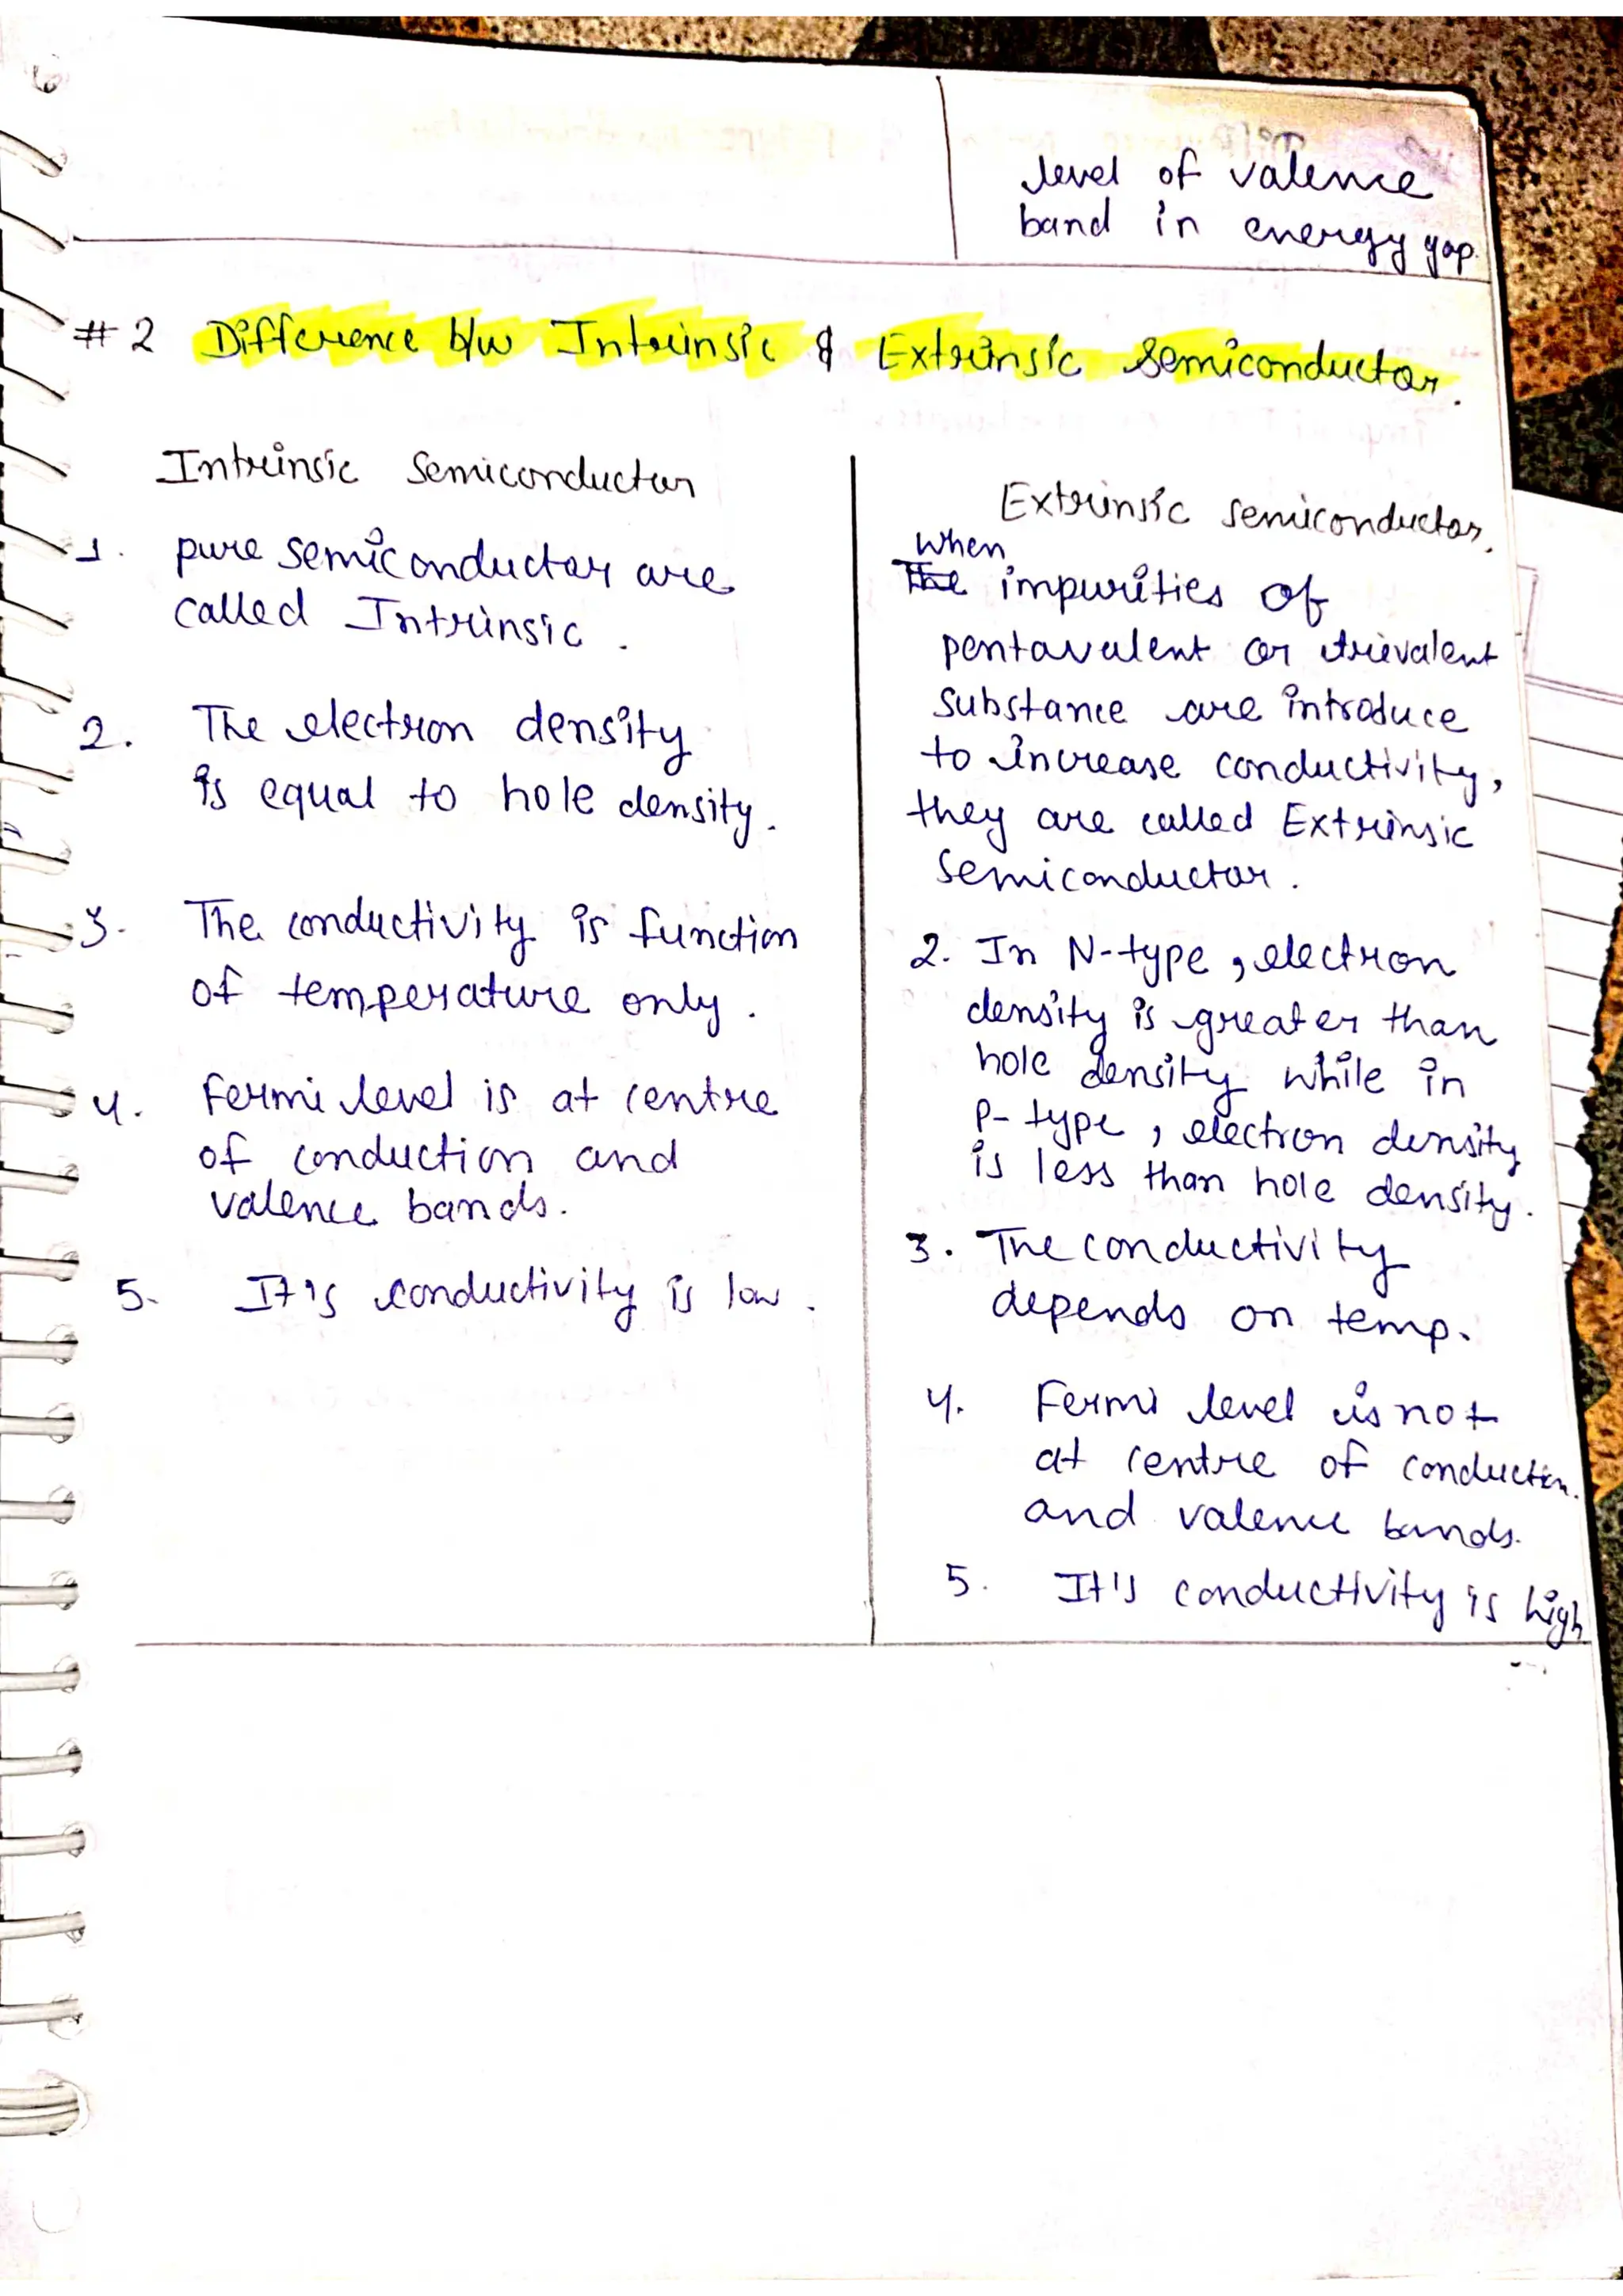 level of valence
band in energy gap.
#2 Difference b/w Intrinsic & Extrinsic Semiconductor.
Intrinsic Semiconductor
1. pure semiconductor are
called Intrinsic.
2. The electron density
is equal to hole density.
3. The conductivity is function
of temperature only.
4. Fermi level is at centre
of conduction and
valence bands.
5. It's conductivity is low.
Extrinsic semiconductor.
When
The impurities of
pentavalent or trievalent
substance are introduce
to increase conductivity,
they are called Extrinsic
Semiconductor.
2. In N-type, electron
density is greater than
hole density while in
P-type, electron density
is less than hole density.
3. The conductivity
depends on temp.
4. Fermi level is not
at centre of conduction.
and valence bands.
5. It's conductivity is high